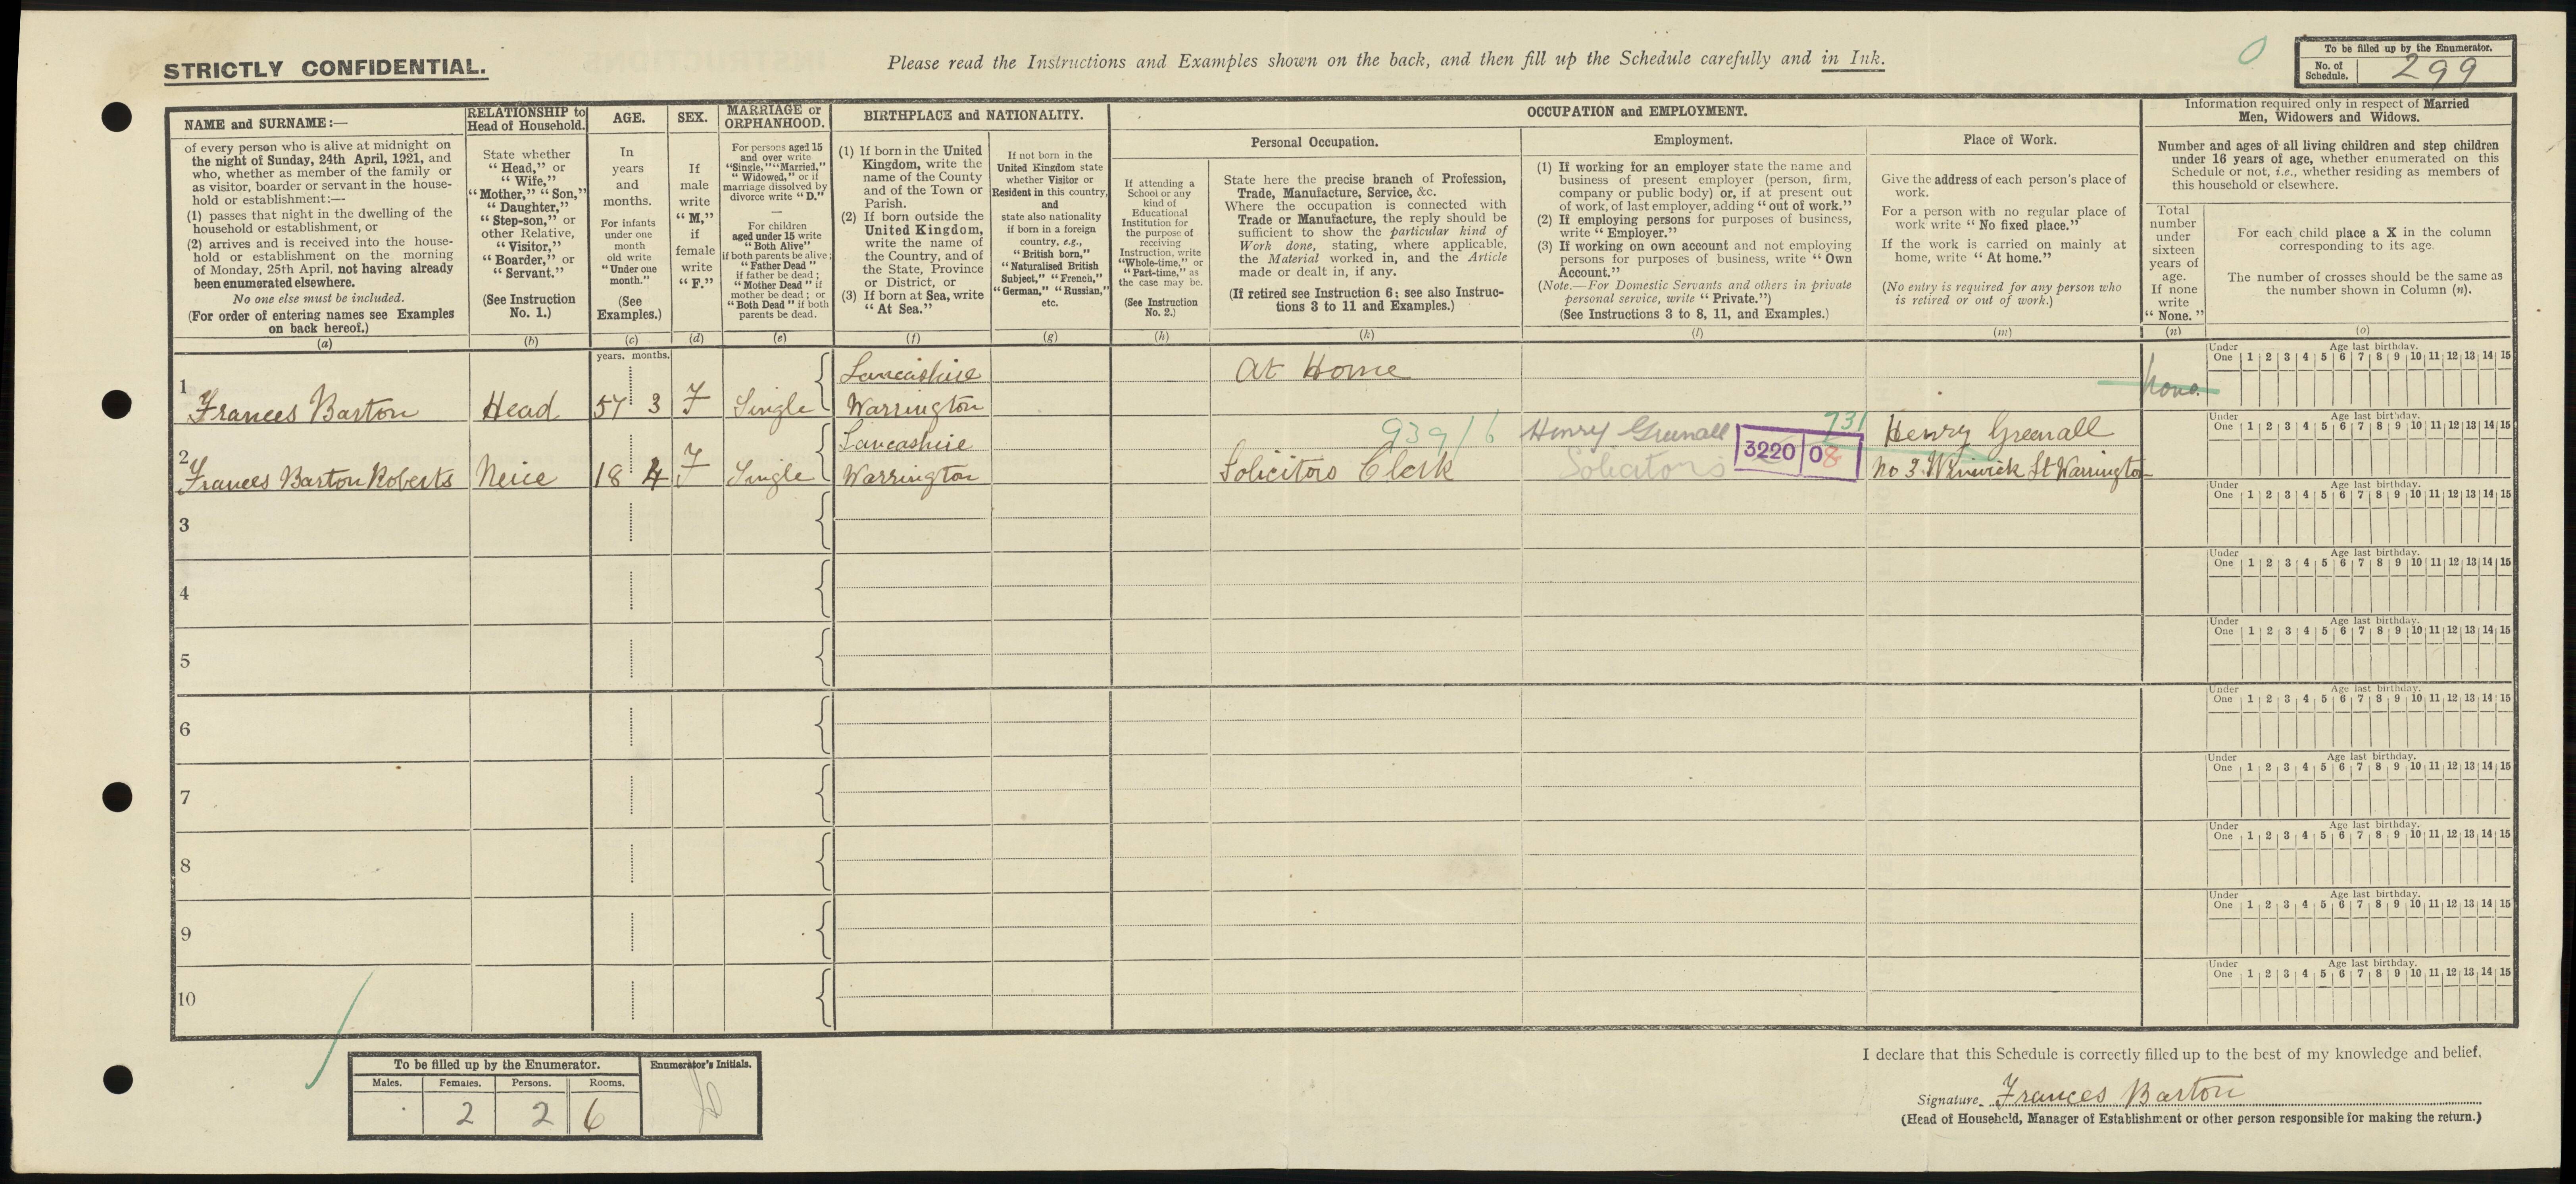 STRICTLY CONFIDENTIAL.
Please read the Instructions and Examples shown on the back, and then fill up the Schedule carefully and in Ink.
0
To be filled up by the Enumerator.
No. of Schedule. 299
NAME and SURNAME:—
of every person who is alive at midnight on
the night of Sunday, 24th April, 1921, and
who, whether as member of the family or
as visitor, boarder or servant in the house-
hold or establishment:—
(1) passes that night in the dwelling of the
household or establishment, or
(2) arrives and is received into the house-
hold or establishment on the morning
of Monday, 25th April, not having already
been enumerated elsewhere.
No one else must be included.
(For order of entering names see Examples
on back hereof.)
(a)
RELATIONSHIP to
Head of Household.
State whether
"Head," or
"Wife,"
"Mother," "Son,"
"Daughter,"
"Step-son," or
other Relative,
"Visitor,"
"Boarder," or
"Servant."
(See Instruction
No. 1.)
(b)
AGE.
In
years
and
months.
For infants
under one
month
old write
"Under one
month."
(See
Examples.)
(c)
SEX.
If
male
write
"M,"
if
female
write
"F."
(d)
MARRIAGE or
ORPHANHOOD.
For persons aged 15
and over write
"Single," "Married,"
"Widowed," or if
marriage dissolved by
divorce write "D."
—
For children
aged under 15 write
"Both Alive"
if both parents be alive;
"Father Dead"
if father be dead;
"Mother Dead" if
mother be dead; or
"Both Dead" if both
parents be dead.
(e)
BIRTHPLACE and NATIONALITY.
(1) If born in the United
Kingdom, write the
name of the County
and of the Town or
Parish.
(2) If born outside the
United Kingdom,
write the name of
the Country, and of
the State, Province
or District, or
(3) If born at Sea, write
"At Sea."
(f)
If not born in the
United Kingdom state
whether Visitor or
Resident in this country,
and
state also nationality
if born in a foreign
country, e.g.,
"British born,"
"Naturalised British
Subject," "French,"
"German," "Russian,"
etc.
(g)
OCCUPATION and EMPLOYMENT.
Personal Occupation.
If attending a
School or any
kind of
Educational
Institution for
the purpose of
receiving
Instruction, write
"Whole-time," or
"Part-time," as
the case may be.
(See Instruction
No. 2.)
(h)
State here the precise branch of Profession,
Trade, Manufacture, Service, &c.
Where the occupation is connected with
Trade or Manufacture, the reply should be
sufficient to show the particular kind of
Work done, stating, where applicable,
the Material worked in, and the Article
made or dealt in, if any.
(If retired see Instruction 6; see also Instruc-
tions 3 to 11 and Examples.)
(k)
Employment.
(1) If working for an employer state the name and
business of present employer (person, firm,
company or public body) or, if at present out
of work, of last employer, adding "out of work."
(2) If employing persons for purposes of business,
write "Employer."
(3) If working on own account and not employing
persons for purposes of business, write "Own
Account."
(Note.—For Domestic Servants and others in private
personal service, write "Private.")
(See Instructions 3 to 8, 11, and Examples.)
(l)
Place of Work.
Give the address of each person's place of
work.
For a person with no regular place of
work write "No fixed place."
If the work is carried on mainly at
home, write "At home."
(No entry is required for any person who
is retired or out of work.)
(m)
Information required only in respect of Married
Men, Widowers and Widows.
Number and ages of all living children and step children
under 16 years of age, whether enumerated on this
Schedule or not, i.e., whether residing as members of
this household or elsewhere.
Total
number
under
sixteen
years of
age.
If none
write
"None."
(n)
For each child place a X in the column
corresponding to its age.
The number of crosses should be the same as
the number shown in Column (n).
(o)
years. months.
Under One Age last birthday. 1 2 3 4 5 6 7 8 9 10 11 12 13 14 15
1 Frances Barton Head 57 3 F Single Lancashire Warrington At Home none.
Under One Age last birthday. 1 2 3 4 5 6 7 8 9 10 11 12 13 14 15
939/6 731
2 Frances Barton Roberts Neice 18 4 F Single Lancashire Warrington Solicitors Clerk Henry Greenall Solicitors 3220 08 Henry Greenall No 3 Winwick St Warrington
Under One Age last birthday. 1 2 3 4 5 6 7 8 9 10 11 12 13 14 15
3
Under One Age last birthday. 1 2 3 4 5 6 7 8 9 10 11 12 13 14 15
4
Under One Age last birthday. 1 2 3 4 5 6 7 8 9 10 11 12 13 14 15
5
Under One Age last birthday. 1 2 3 4 5 6 7 8 9 10 11 12 13 14 15
6
Under One Age last birthday. 1 2 3 4 5 6 7 8 9 10 11 12 13 14 15
7
Under One Age last birthday. 1 2 3 4 5 6 7 8 9 10 11 12 13 14 15
8
Under One Age last birthday. 1 2 3 4 5 6 7 8 9 10 11 12 13 14 15
9
Under One Age last birthday. 1 2 3 4 5 6 7 8 9 10 11 12 13 14 15
10
To be filled up by the Enumerator.
Males. Females. Persons. Rooms.
2 2 6
Enumerator's Initials.
I declare that this Schedule is correctly filled up to the best of my knowledge and belief.
Signature Frances Barton
(Head of Household, Manager of Establishment or other person responsible for making the return.)